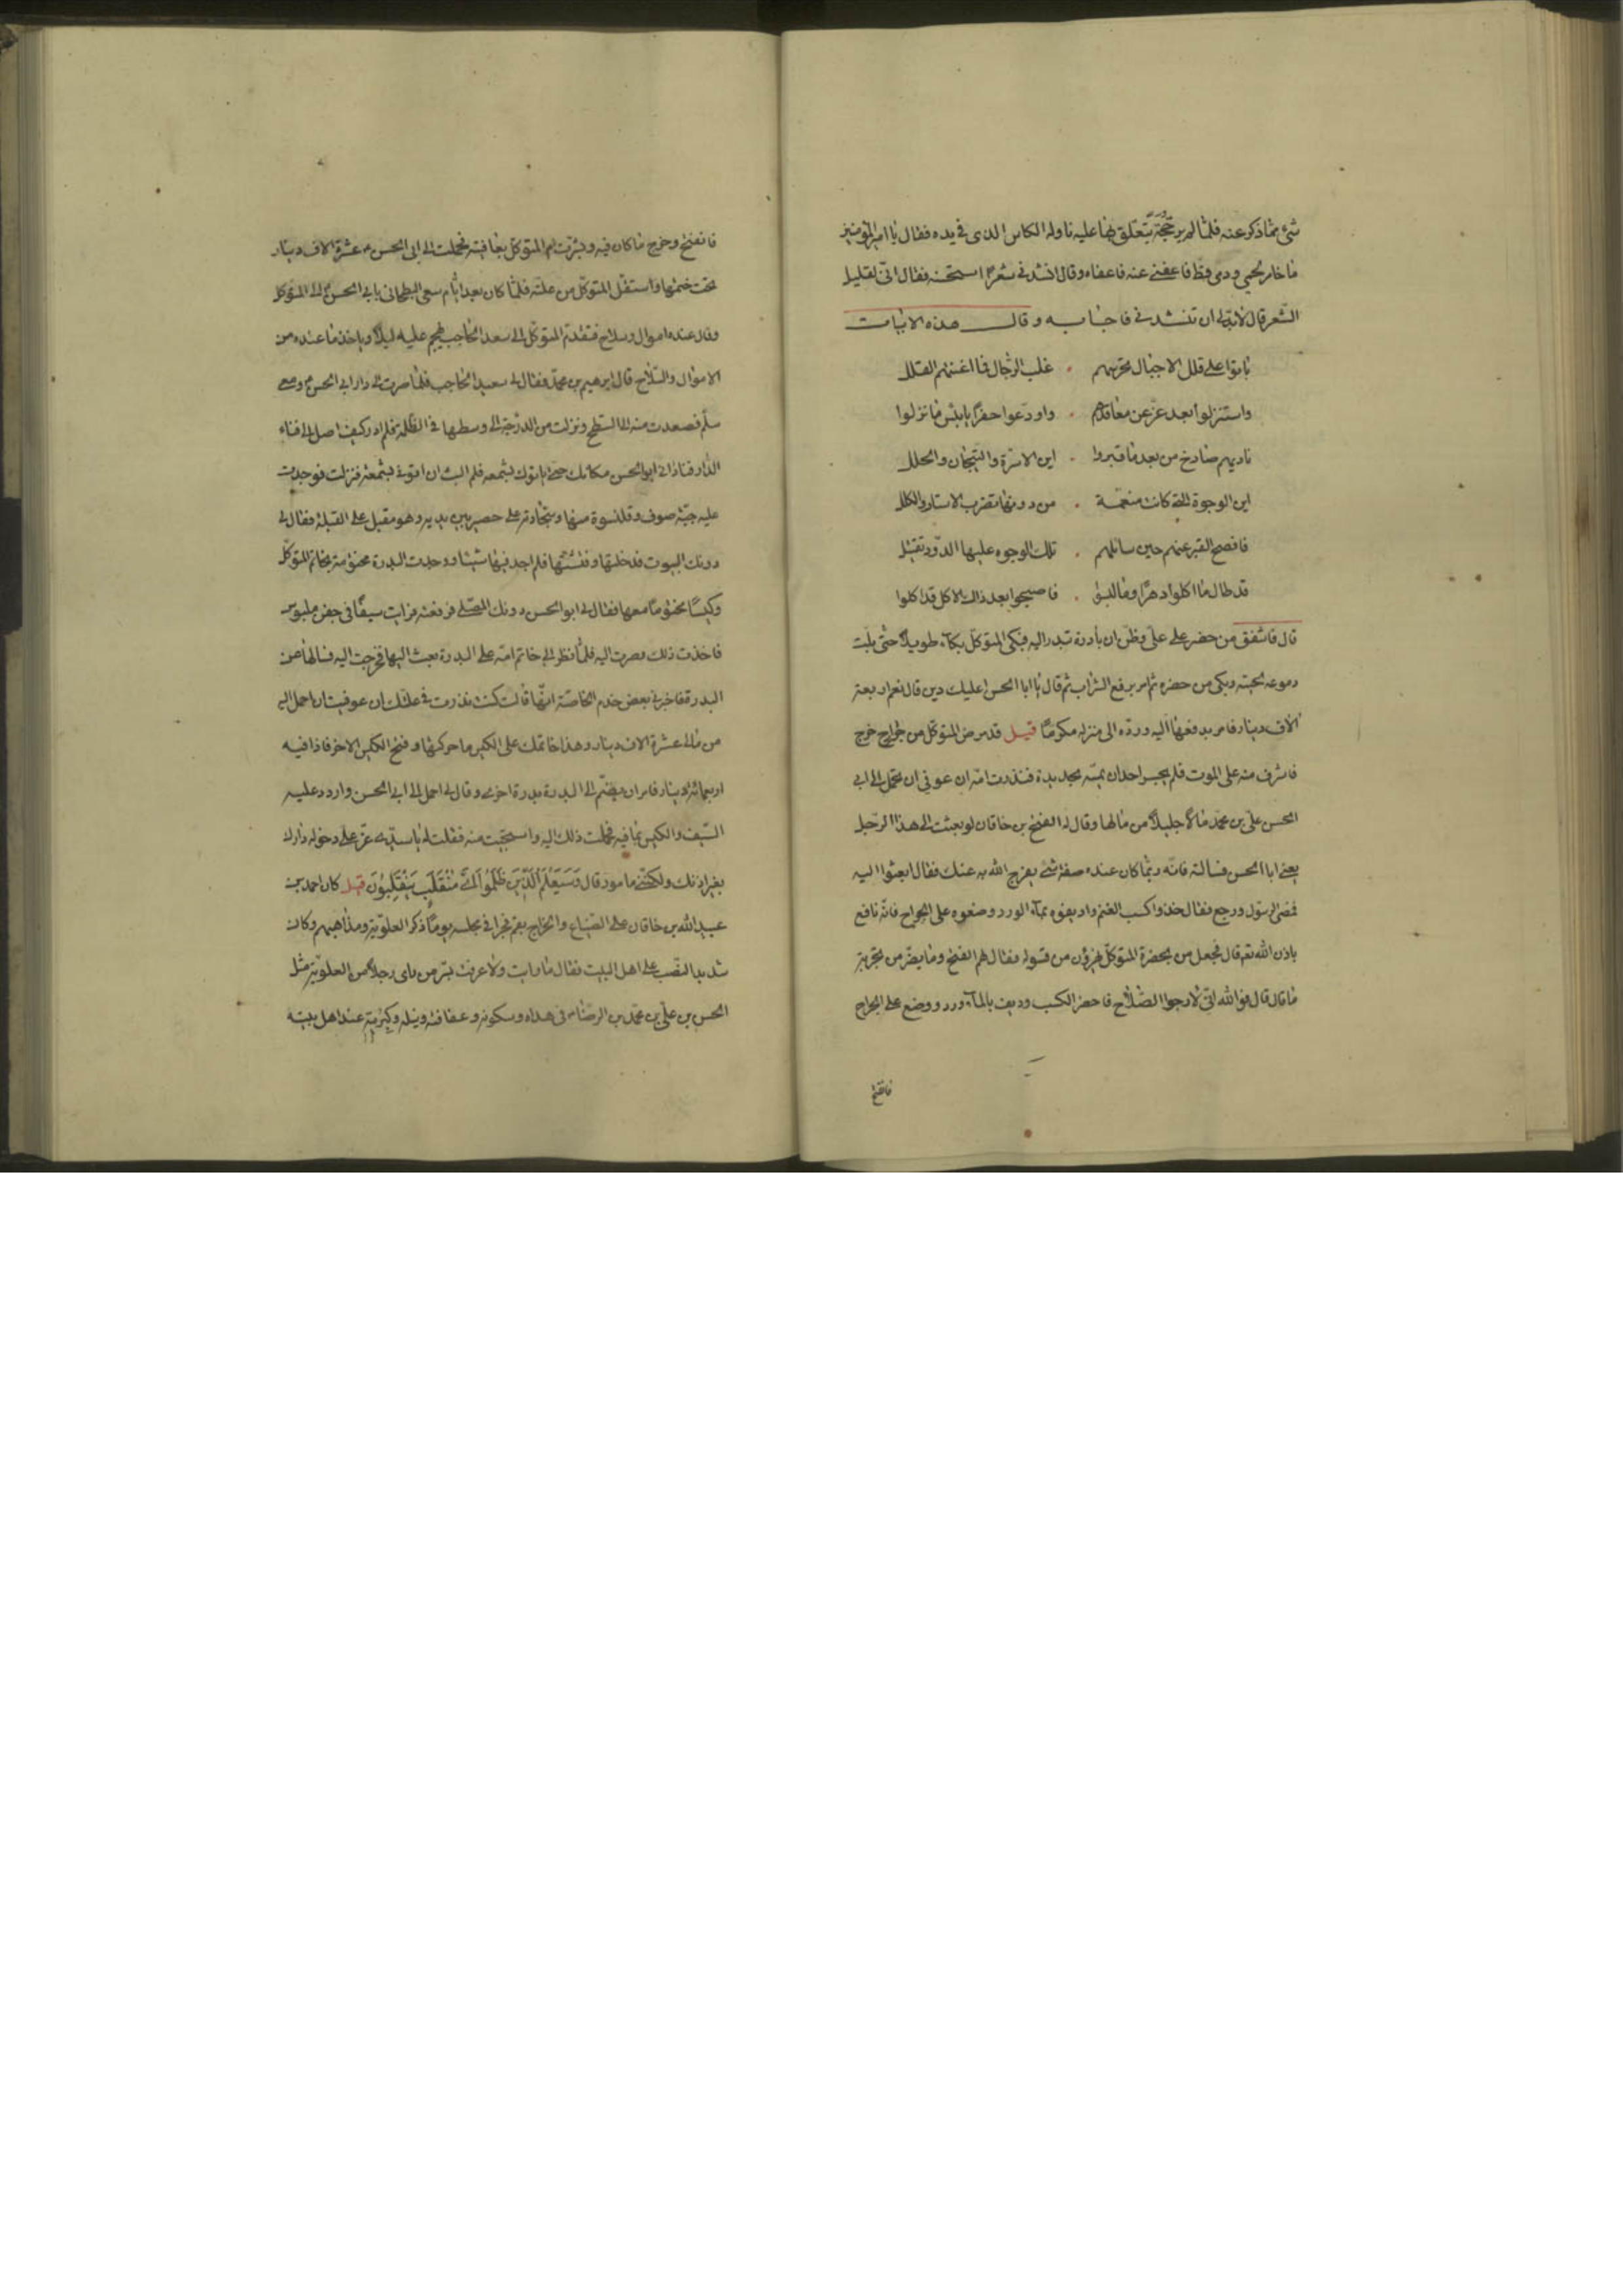 شئ مما ذكر عنه فلما لم ير حجة يتعلق بها عليه ناوله الكاس الذى فى يده فقال يا امير المؤمنين
ما خامر لحمى ودمى قط فاعفنى عنه فاعفاه وقال انشدنى شعرا استحسنه فقال انى لقليل
الشعر قال لابد لى ان تنشدنى فاجابه وقال هذه الابيات
باتوا على قلل الاجبال تحرسهم . غلب الرجال فما اغنتهم القلل
واستنزلوا بعد عز عن معاقلهم . واودعوا حفرا يا بئس ما نزلوا
ناديهم صارخ من بعد ما قبروا . اين الاسرة والتيجان والحلل
اين الوجوة التى كانت منعمة . من دونها تضرب الاستار والكلل
فافصح القبر عنهم حين سائلهم . تلك الوجوه عليها الدود تقتتل
قد طال ما اكلوا دهرا وما لبسوا . فاصبحوا بعد ذاك الاكل قد اكلوا
قال فاشفق من حضر على على وظن ان بادرة تبدر اليه فبكى المتوكل بكاء طويلا حتى بلت
دموعه لحيته وبكى من حضره ثم امر برفع الشراب ثم قال يا ابا الحسن اعليك دين قال نعم اربعة
الاف دينار فامر بدفعها اليه ورده الى منزله مكرما قيل قد مرض المتوكل من خراج خرج
فاشرف منه على الموت فلم يجسر احد ان يمسه بحديدة فنذرت امه ان عوفى ان تحمل الى ابى
الحسن على بن محمد مالا جليلا من مالها وقال له الفتح بن خاقان لو بعثت الى هذا الرجل
يعنى ابا الحسن فسالته فانه ربما كان عنده صفة شئ يفرج الله به عنك فقال ابعثوا اليه
فمضى الرسول ورجع فقال خذوا كسب الغنم واديفوه بماء الورد وضعوه على الجراح فانه نافع
باذن الله تعم قال فجعل من بحضرة المتوكل يهزؤن من قوله فقال لهم الفتح وما يضر من تجربة
ما قال قال فوالله انى لارجوا الصلاح فاحضر الكسب وديف بالماء ورد ووضع على الجراح
فانفتح
فانفتح وخرج ما كان فيه وبشرت ام المتوكل بعافيته فحملت الى ابى الحسن ع عشرة الاف دينار
تحت ختمها واستقل المتوكل من علته فلما كان بعد ايام سعى البطحانى بابى الحسن ع الى المتوكل
وقال عنده اموال وسلاح فتقدم المتوكل الى سعيد الحاجب ليهجم عليه ليلا وياخذ ما عنده من
الاموال والسلاح قال ابرهيم بن محمد فقال لى سعيد الحاجب فلما صرت الى دار ابى الحسن ع ومعى
سلم فصعدت منه الى السطح ونزلت من الدرجة الى وسطها فى الظلمة فلم ادر كيف اصل الى فناء
الدار فنادانى ابو الحسن مكانك حتى ياتوك بشمعه فلم البث ان اتونى بشمعة فنزلت فوجدت
عليه جبة صوف وقلنسوة منها وسجادة على حصير بين يديه وهو مقبل على القبلة فقال لى
دونك البيوت فدخلتها وفتشتها فلم اجد فيها شيئا ووجدت البدرة مختومة بخاتم المتوكل
وكيسا مختوما معها فقال لى ابو الحسن دونك المصلى فرفعته فرايت سيفا فى جفن ملبوس
فاخذت ذلك وصرت اليه فلما نظر الى خاتم امه على البدرة بعث اليها فخرجت اليه فسالها عن
البدرة فاخبرنى بعض خدم الخاصة انها قالت كنت نذرت فى علتك ان عوفيت ان احمل اليه
من مالى عشرة الاف دينار وهذا خاتمك على الكيس ما حركها وفتح الكيس الاخر فاذا فيه
اربعمائة دينار فامر ان يضم الى البدرة بدرة اخرى وقال لى احمل الى ابى الحسن واردد عليه
السيف والكيس بما فيه فحملت ذلك اليه واستحييت منه فقلت له يا سيدى عز على دخولى دارك
بغير اذنك ولكننى مامور قال وَسَيَعْلَمُ الَّذِينَ ظَلَمُوا اَىَّ مُنْقَلَبٍ يَنْقَلِبُونَ قيل كان احمد بن
عبيد الله بن خاقان على الضياع والخراج بقم فجرى فى مجلسه يوما ذكر العلوية ومذاهبهم وكان
شديد النصب على اهل البيت فقال ما رايت ولا عرفت بسر من راى رجلا من العلوية مثل
الحسن بن على بن محمد بن الرضا ع فى هداه وسكونه وعفافه ونبله وكبرته عند اهل بيته